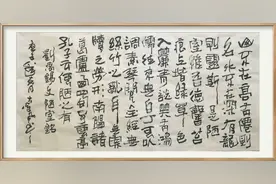 山不在高有仙則
名水不在深有龍
則靈斯是陋
室惟吾德馨苔
痕上階綠草色
入簾青談笑有鴻
儒往來無白丁可以
調素琴閱金經無
絲竹之亂耳無案
牘之勞形南陽諸
葛廬西蜀子雲亭
孔子云何陋之有
劉禹錫文陋室銘